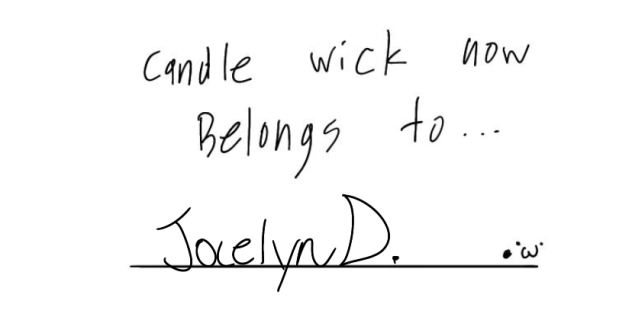 Candle wick now
Belongs to...
Jocelyn D. •'ω'